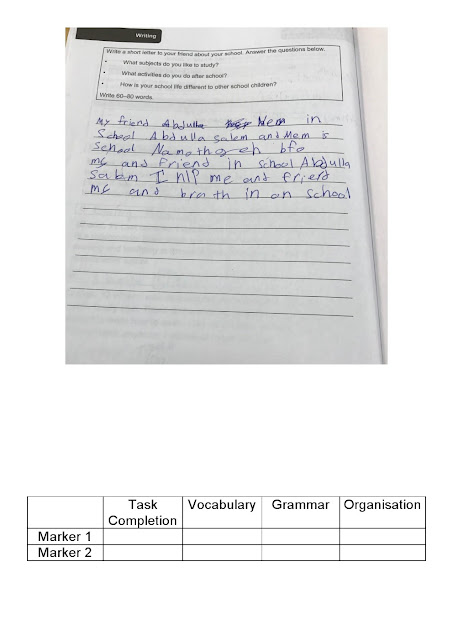 Writing
Write a short letter to your friend about your school. Answer the questions below.
• What subjects do you like to study?
• What activities do you do after school?
• How is your school life different to other school children?
Write 60–80 words.
My friend Abdulla Mem in
School Abdulla salem and Mem is
School bfo
me and Friend in school Abdulla
Salem I hlP me and friend
me and broth in on school
Task Completion Vocabulary Grammar Organisation
Marker 1
Marker 2